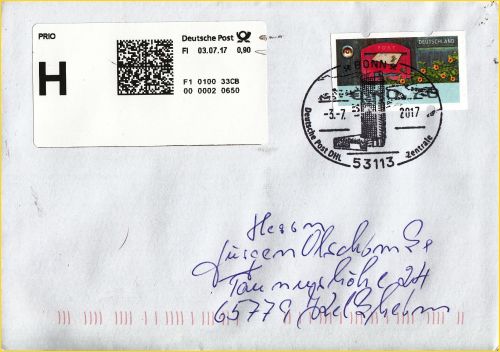 PRIO
H
Deutsche Post
FI 03.07.17 0,90
F1 0100 33CB
00 0002 0650
POST
DEUTSCHLAND
BONN
-3.-7. 2017
Deutsche Post DHL Zentrale
53113
Herrn
Jürgen
Taunushöhe 24
65779 Kelkheim